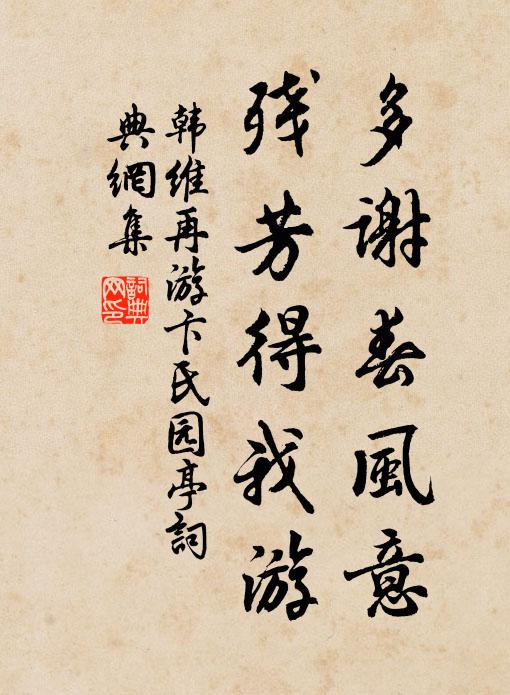 多谢春风意
残芳得我游
韩维再游卞氏园亭詞
典網集
詞典网印